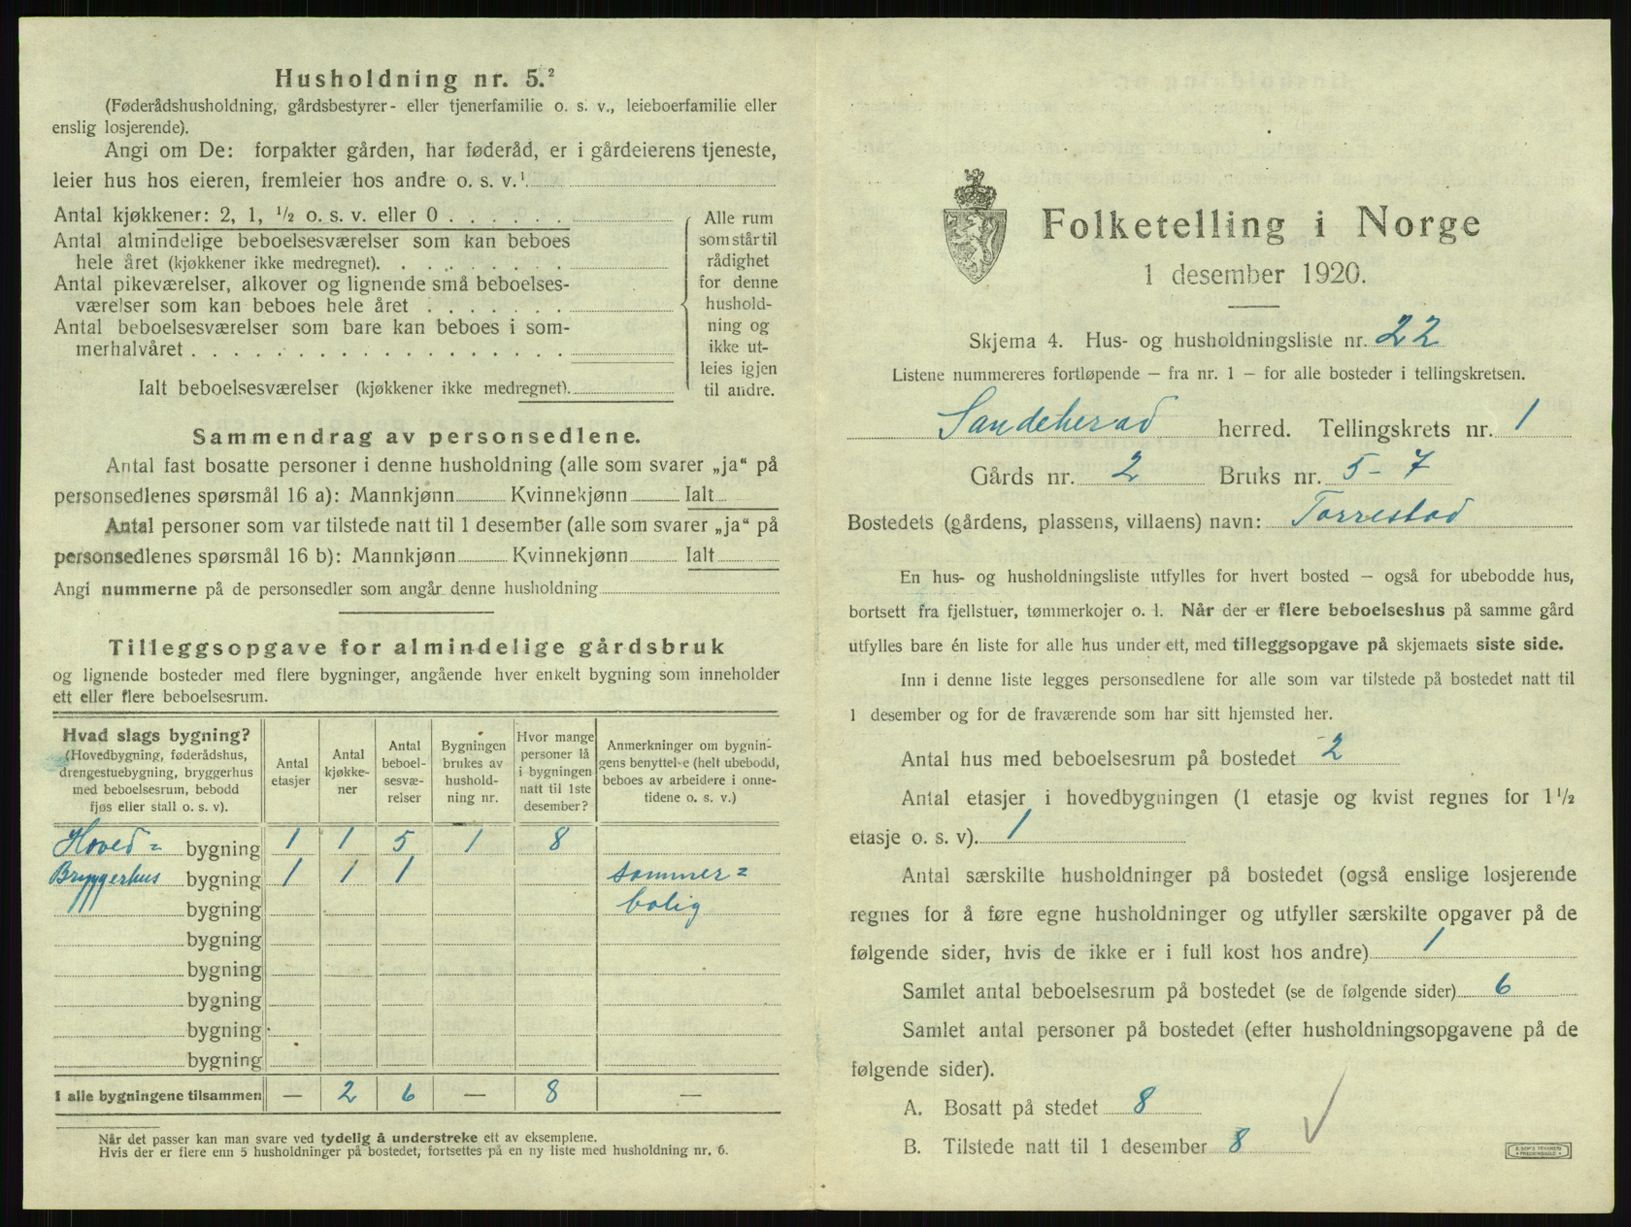 Husholdning nr. 5.²
(Føderådshusholdning, gårdsbestyrer- eller tjenerfamilie o. s. v., leieboerfamilie eller
enslig losjerende).
Angi om De: forpakter gården, har føderåd, er i gårdeierens tjeneste,
leier hus hos eieren, fremleier hos andre o. s. v.¹
Antal kjøkkener: 2, 1, ½ o. s. v. eller 0 . . . . . .
Antal almindelige beboelsesværelser som kan beboes
hele året (kjøkkener ikke medregnet). . . . . . . .
Antal pikeværelser, alkover og lignende små beboelses-
værelser som kan beboes hele året . . . . . . .
Antal beboelsesværelser som bare kan beboes i som-
merhalvåret . . . . . . . . . . . . . . . . . .
Ialt beboelsesværelser (kjøkkener ikke medregnet).
Alle rum
som står til
rådighet
for denne
hushold-
ning og
ikke ut-
leies igjen
til andre.
Sammendrag av personsedlene.
Antal fast bosatte personer i denne husholdning (alle som svarer „ja“ på
personsedlenes spørsmål 16 a): Mannkjønn Kvinnekjønn Ialt
Antal personer som var tilstede natt til 1 desember (alle som svarer „ja“ på
personsedlenes spørsmål 16 b): Mannkjønn Kvinnekjønn Ialt
Angi nummerne på de personsedler som angår denne husholdning
Tilleggsopgave for almindelige gårdsbruk
og lignende bosteder med flere bygninger, angående hver enkelt bygning som inneholder
ett eller flere beboelsesrum.
Hvad slags bygning?
(Hovedbygning, føderådshus,
drengestuebygning, bryggerhus
med beboelsesrum, bebodd
fjøs eller stall o. s. v).
Antal
etasjer
Antal
kjøkke-
ner
Antal
beboel-
sesvæ-
relser
Bygningen
brukes av
hushold-
ning nr.
Hvor mange
personer lå
i bygningen
natt til 1ste
desember?
Anmerkninger om bygnin-
gens benyttelse (helt ubebodd,
beboes av arbeidere i onne-
tidene o. s. v.)
Hoved= bygning 1 1 5 1 8
Bryggerhus bygning 1 1 1 sommer=
bygning bolig
bygning
bygning
bygning
bygning
bygning
I alle bygningene tilsammen — 2 6 — 8 —
Når det passer kan man svare ved tydelig å understreke ett av eksemplene.
Hvis der er flere enn 5 husholdninger på bostedet, fortsettes på en ny liste med husholdning nr. 6.
Folketelling i Norge
1 desember 1920.
Skjema 4. Hus- og husholdningsliste nr. 22
Listene nummereres fortløpende — fra nr. 1 — for alle bosteder i tellingskretsen.
Sandeherad herred. Tellingskrets nr. 1
Gårds nr. 2 Bruks nr. 5-7
Bostedets (gårdens, plassens, villaens) navn: Torrestad
En hus- og husholdningsliste utfylles for hvert bosted — også for ubebodde hus,
bortsett fra fjellstuer, tømmerkojer o. l. Når der er flere beboelseshus på samme gård
utfylles bare én liste for alle hus under ett, med tilleggsopgave på skjemaets siste side.
Inn i denne liste legges personsedlene for alle som var tilstede på bostedet natt til
1 desember og for de fraværende som har sitt hjemsted her.
Antal hus med beboelsesrum på bostedet 2
Antal etasjer i hovedbygningen (1 etasje og kvist regnes for 1½
etasje o. s. v). 1
Antal særskilte husholdninger på bostedet (også enslige losjerende
regnes for å føre egne husholdninger og utfyller særskilte opgaver på de
følgende sider, hvis de ikke er i full kost hos andre) 1
Samlet antal beboelsesrum på bostedet (se de følgende sider) 6
Samlet antal personer på bostedet (efter husholdningsopgavene på de
følgende sider).
A. Bosatt på stedet 8
B. Tilstede natt til 1 desember 8